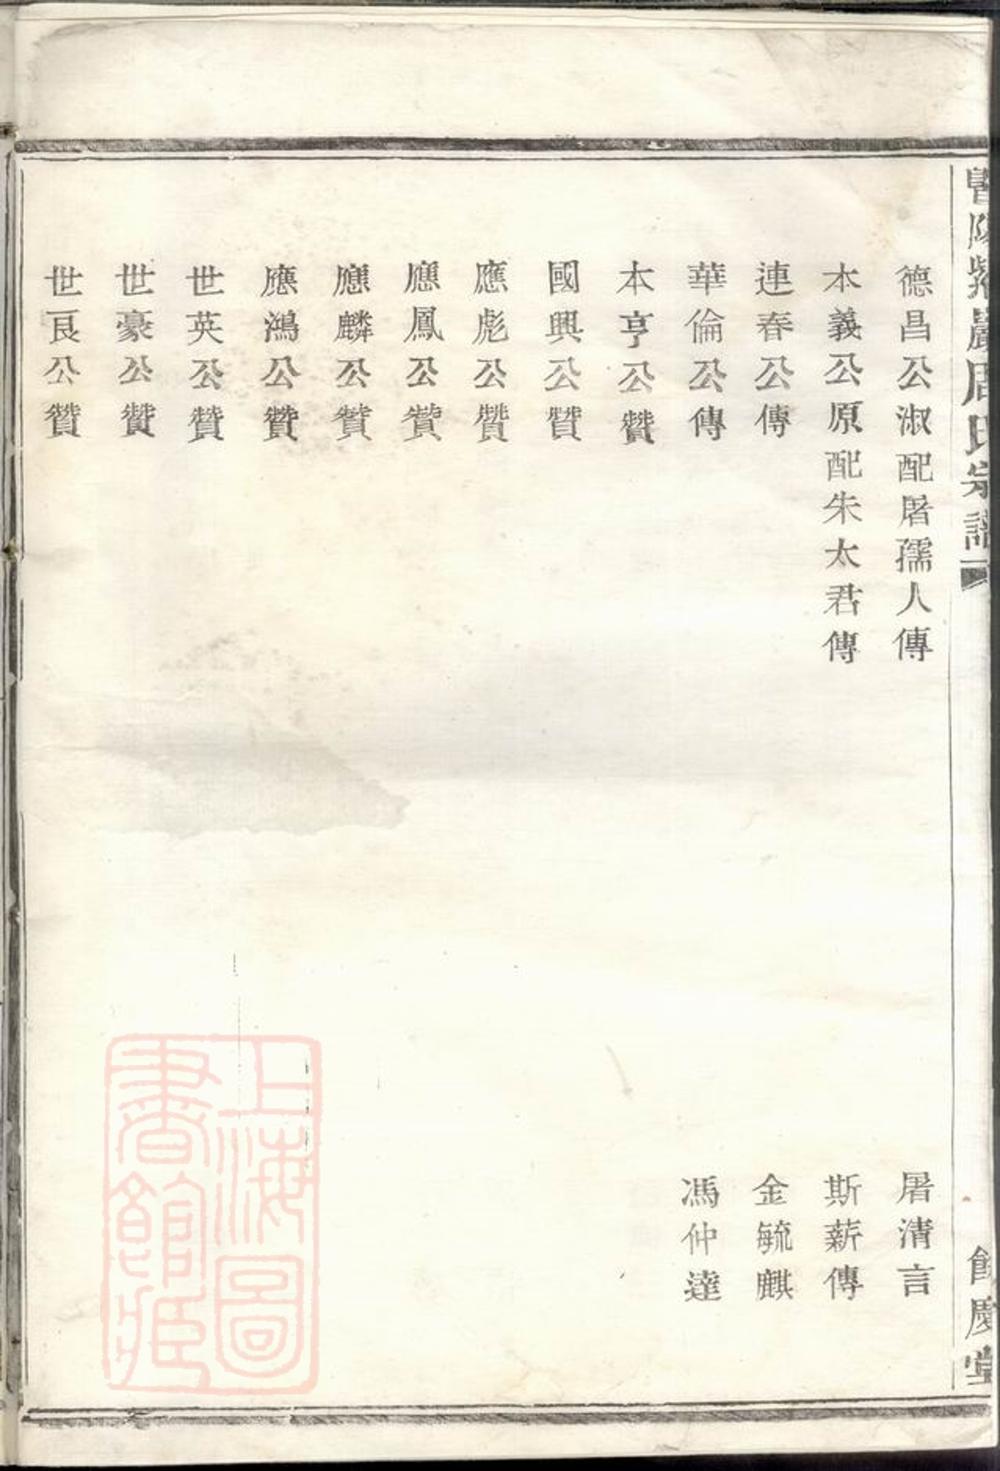 暨陽紫巖周氏宗譜
德昌公淑配屠孺人傳 屠清言
本義公原配朱太君傳 斯薪傳
連春公傳 金毓麒
華倫公傳 馮仲達
本亨公贊
國興公贊
應彪公贊
應鳳公贊
應麟公贊
應鴻公贊
世英公贊
世豪公贊
世良公贊
慶堂
上海圖書館藏